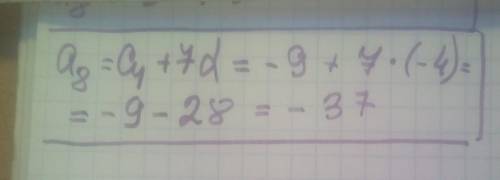 a₈ = a₁ + 7d = -9 + 7·(-4) =
= -9 - 28 = -37